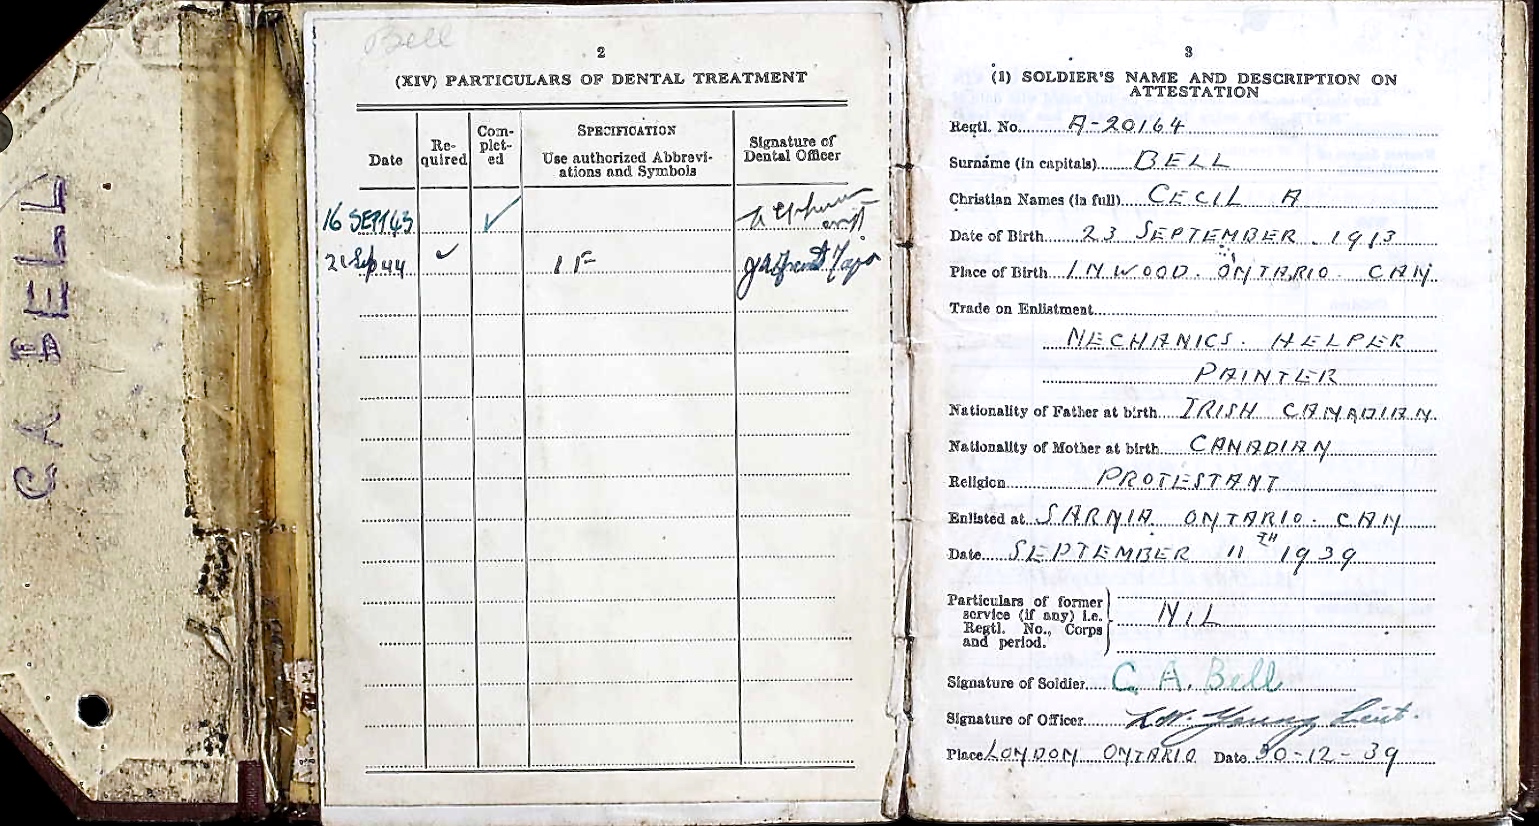 C A BELL
Bell
2
(XIV) PARTICULARS OF DENTAL TREATMENT
Date
Re-
quired
Com-
plet-
ed
SPECIFICATION
Use authorized Abbrevi-
ations and Symbols
Signature of
Dental Officer
16 SEPT 43 ✓
21 Sep 44 ✓ 1 F Major
3
(1) SOLDIER'S NAME AND DESCRIPTION ON
ATTESTATION
Regtl. No. A-20164
Surname (in capitals) BELL
Christian Names (in full) CECIL A
Date of Birth 23 SEPTEMBER. 1913
Place of Birth INWOOD. ONTARIO. CAN.
Trade on Enlistment
MECHANICS. HELPER
PAINTER
Nationality of Father at birth IRISH CANADIAN.
Nationality of Mother at birth CANADIAN
Religion PROTESTANT
Enlisted at SARNIA. ONTARIO. CAN
Date SEPTEMBER 11TH 1939
Particulars of former
service (if any) i.e.
Regtl. No., Corps
and period.
NIL
Signature of Soldier C. A. Bell
Signature of Officer Young Lieut.
Place LONDON ONTARIO Date 30-12-39